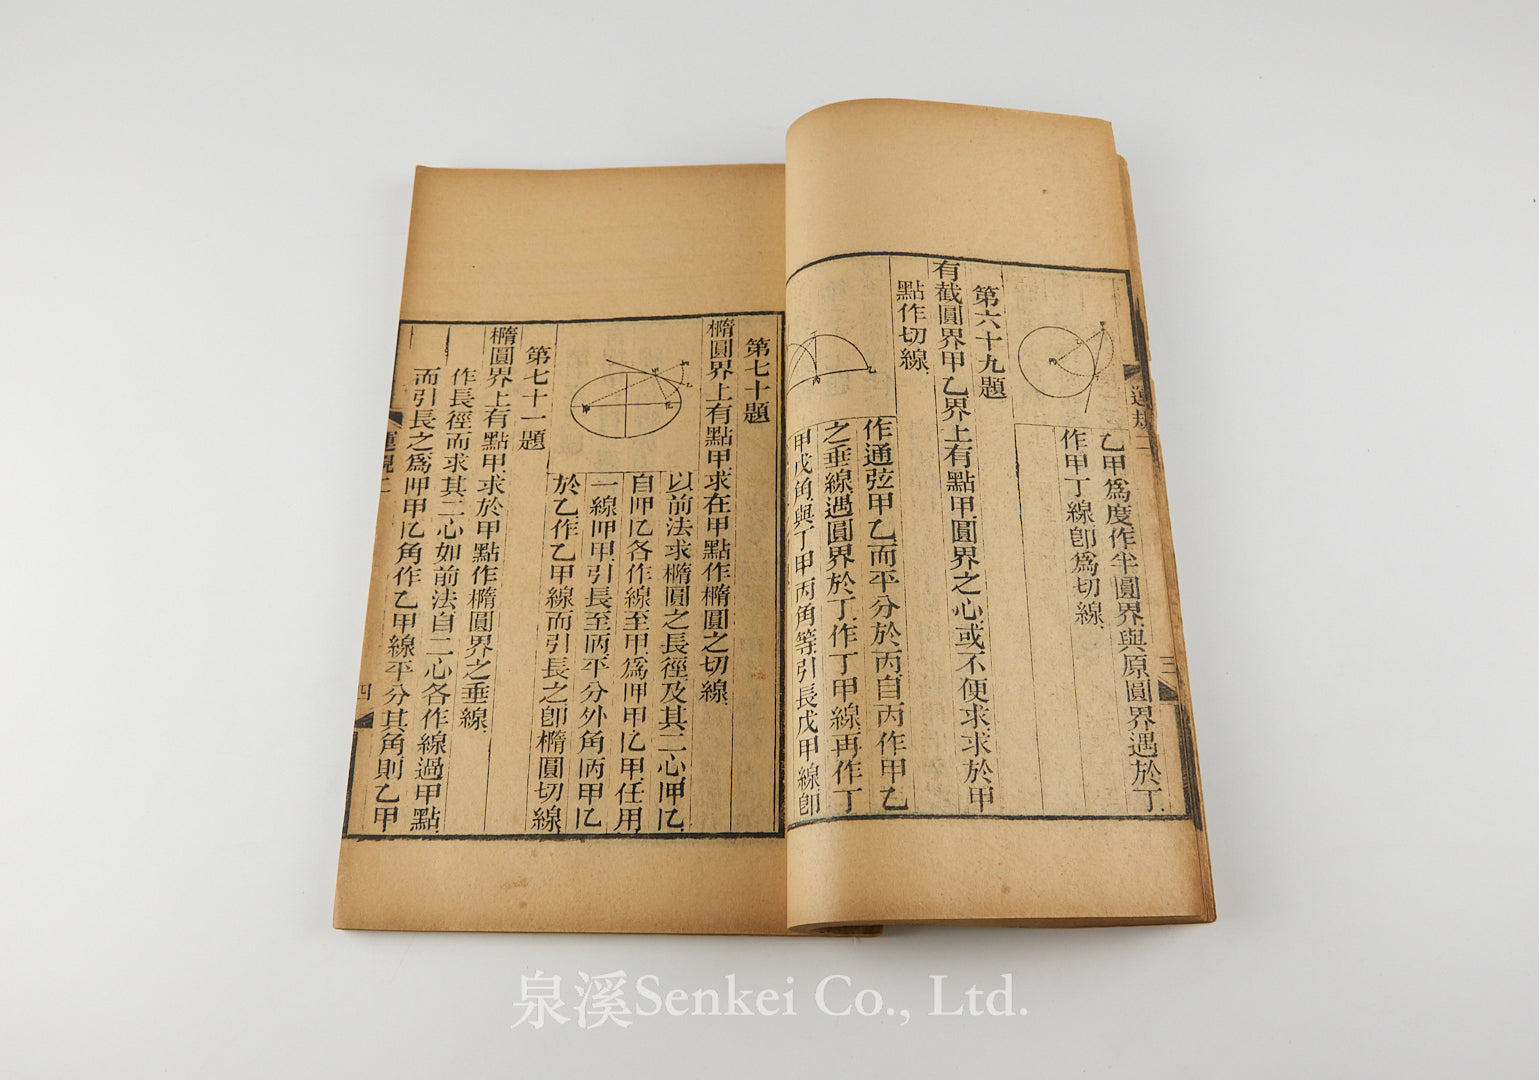 乙甲爲度作半圓界與原圓界遇於丁
作甲丁線卽爲切線
第六十九題
有截圓界甲乙界上有點甲圓界之心或不便求求於甲
點作切線
作通弦甲乙而平分於丙自丙作甲乙
之垂線遇圓界於丁作丁甲線再作丁
甲戊角與丁甲丙角等引長戊甲線卽
三
第七十題
橢圓界上有點甲求在甲點作橢圓之切線
以前法求橢圓之長徑及其二心呷𠮙
自呷𠮙各作線至甲爲呷甲𠮙甲任用
一線呷甲引長至唡平分外角唡甲𠮙
於乙作乙甲線而引長之卽橢圓切線
第七十一題
橢圓界上有點甲求於甲點作橢圓界之垂線
作長徑而求其二心如前法自二心各作線過甲點
而引長之爲呷甲𠮙角作乙甲線平分其角則乙甲
運規二
四
泉溪Senkei Co., Ltd.